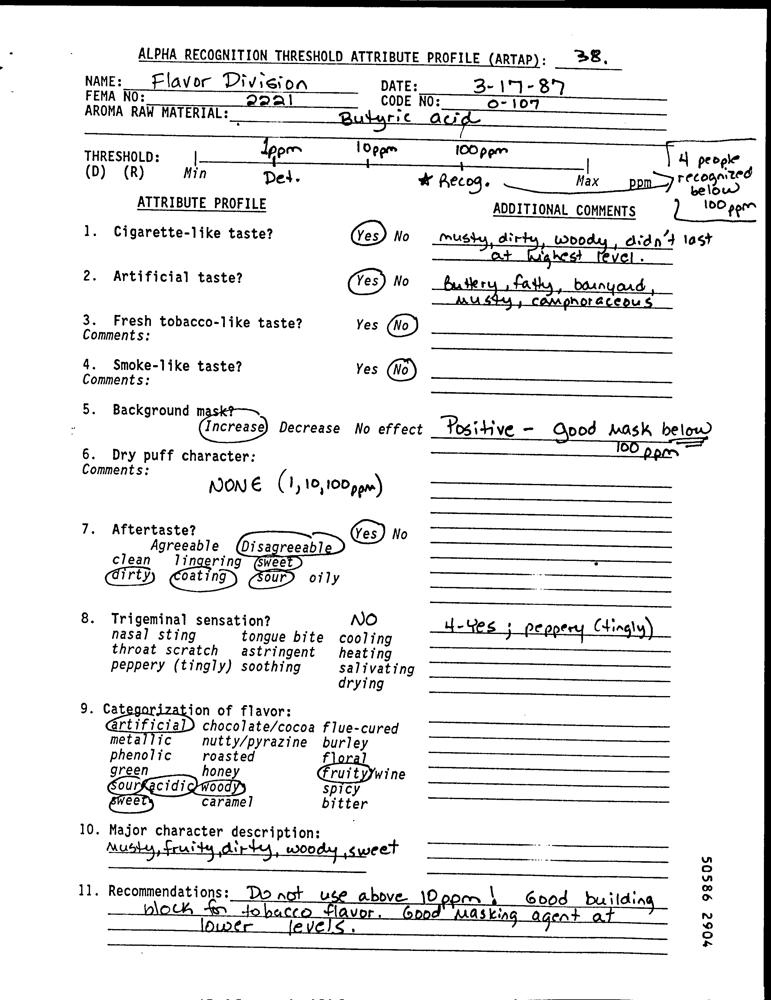 ALPHA RECOGNITION THRESHOLD ATTRIBUTE PROFILE (ARTAP): 38.
NAME: Flavor Division DATE: 3-17-87
FEMA NO: 2221 CODE NO: 0-107
AROMA RAW MATERIAL: Butyric acid
THRESHOLD: 1ppm 10ppm 100ppm
(D) (R) Min Det. * Recog. Max ppm
4 people
recognized
below
100 ppm
ATTRIBUTE PROFILE ADDITIONAL COMMENTS
1. Cigarette-like taste? Yes No musty, dirty, woody, didn't last
at highest level.
2. Artificial taste? Yes No Buttery, fatty, barnyard,
musty, camphoraceous
3. Fresh tobacco-like taste? Yes No
Comments:
4. Smoke-like taste? Yes No
Comments:
5. Background mask?
Increase Decrease No effect Positive - good mask below
100 ppm
6. Dry puff character:
Comments:
NONE (1,10,100ppm)
7. Aftertaste? Yes No
Agreeable Disagreeable
clean lingering sweet
dirty coating sour oily
8. Trigeminal sensation? NO 4-Yes ; peppery (tingly)
nasal sting tongue bite cooling
throat scratch astringent heating
peppery (tingly) soothing salivating
drying
9. Categorization of flavor:
artificial chocolate/cocoa flue-cured
metallic nutty/pyrazine burley
phenolic roasted floral
green honey fruity/wine
sour/acidic woody spicy
sweet caramel bitter
10. Major character description:
musty, fruity, dirty, woody, sweet
11. Recommendations: Do not use above 10 ppm! Good building
block for tobacco flavor. Good masking agent at
lower levels.
50586 2904